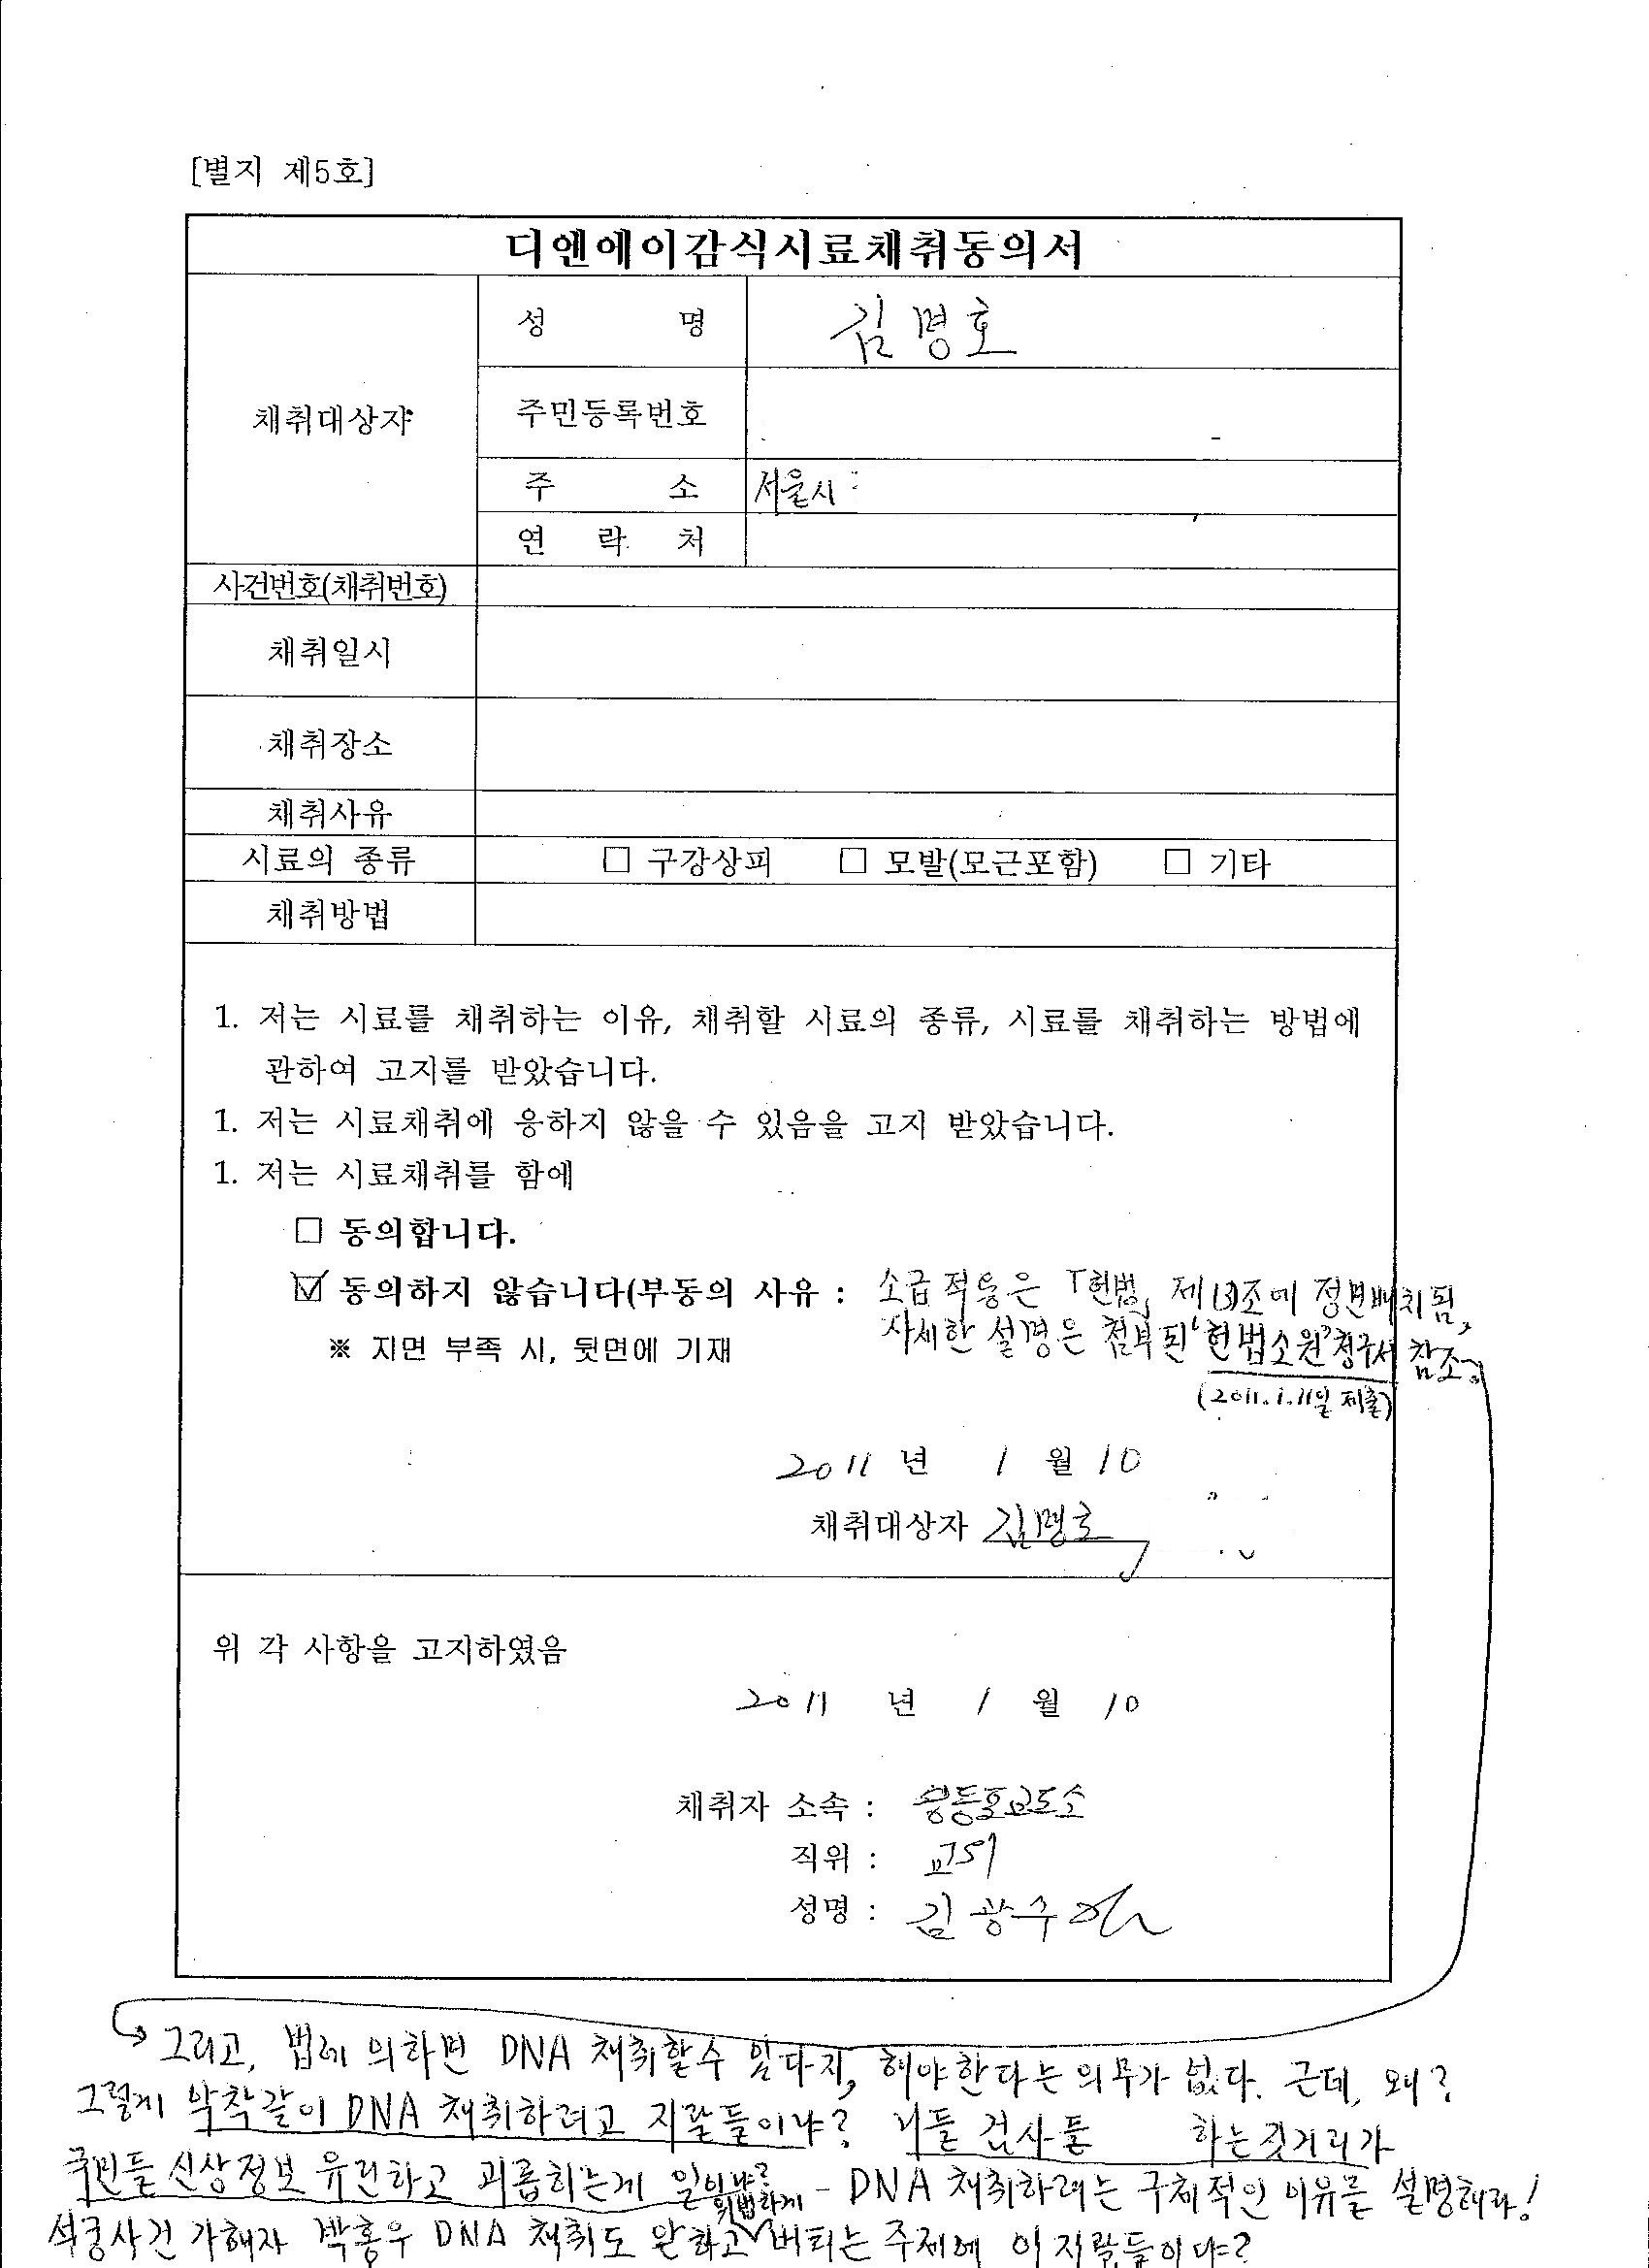 [별지 제5호]
디엔에이감식시료채취동의서
채취대상자
성 명 김명호
주민등록번호 -
주 소 서울시
연 락 처
사건번호(채취번호)
채취일시
채취장소
채취사유
시료의 종류 □ 구강상피 □ 모발(모근포함) □ 기타
채취방법
1. 저는 시료를 채취하는 이유, 채취할 시료의 종류, 시료를 채취하는 방법에
관하여 고지를 받았습니다.
1. 저는 시료채취에 응하지 않을 수 있음을 고지 받았습니다.
1. 저는 시료채취를 함에
□ 동의합니다.
☑ 동의하지 않습니다(부동의 사유 : 소급적용은 「헌법」 제13조에 정면배치됨,
※ 지면 부족 시, 뒷면에 기재 자세한 설명은 첨부된 '헌법소원'청구서 참조.
(2011.1.11일 제출)
2011 년 1 월 10
채취대상자 김명호
위 각 사항을 고지하였음
2011 년 1 월 10
채취자 소속 : 영등포교도소
직위 : 교위
성명 : 김광수
그리고, 법에 의하면 DNA 채취할수 있다지, 해야한다는 의무가 없다. 근데, 왜?
그렇게 악착같이 DNA 채취하려고 지랄들이냐? 니들 검사들 하는짓거리가
국민들 신상정보 유린하고 괴롭히는게 일이냐? - DNA 채취하려는 구체적인 이유를 설명해라!
석궁사건 가해자 박홍우 DNA 채취도 안하고 위법하게 버티는 주제에 이 지랄들이냐?